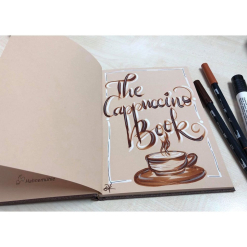 The
Cappuccino
Book